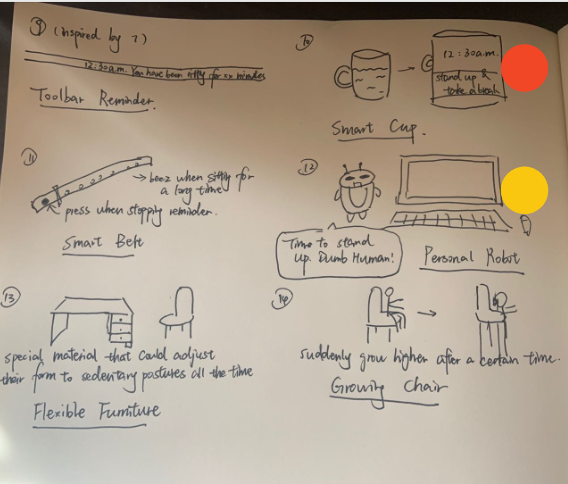 9 (inspired by 7)
12:30a.m. You have been sitting for xx minutes
Toolbar Reminder.
10
12:30a.m.
stand up &
take a break
Smart Cup.
11
→ beez when sitting for
a long time
press when stopping reminder.
Smart Belt
12
Time to stand
up. Dumb Human!
Personal Robot
13
special material that could adjust
their form to sedentary postures all the time
Flexible Furniture
14
suddenly grow higher after a certain time.
Growing Chair